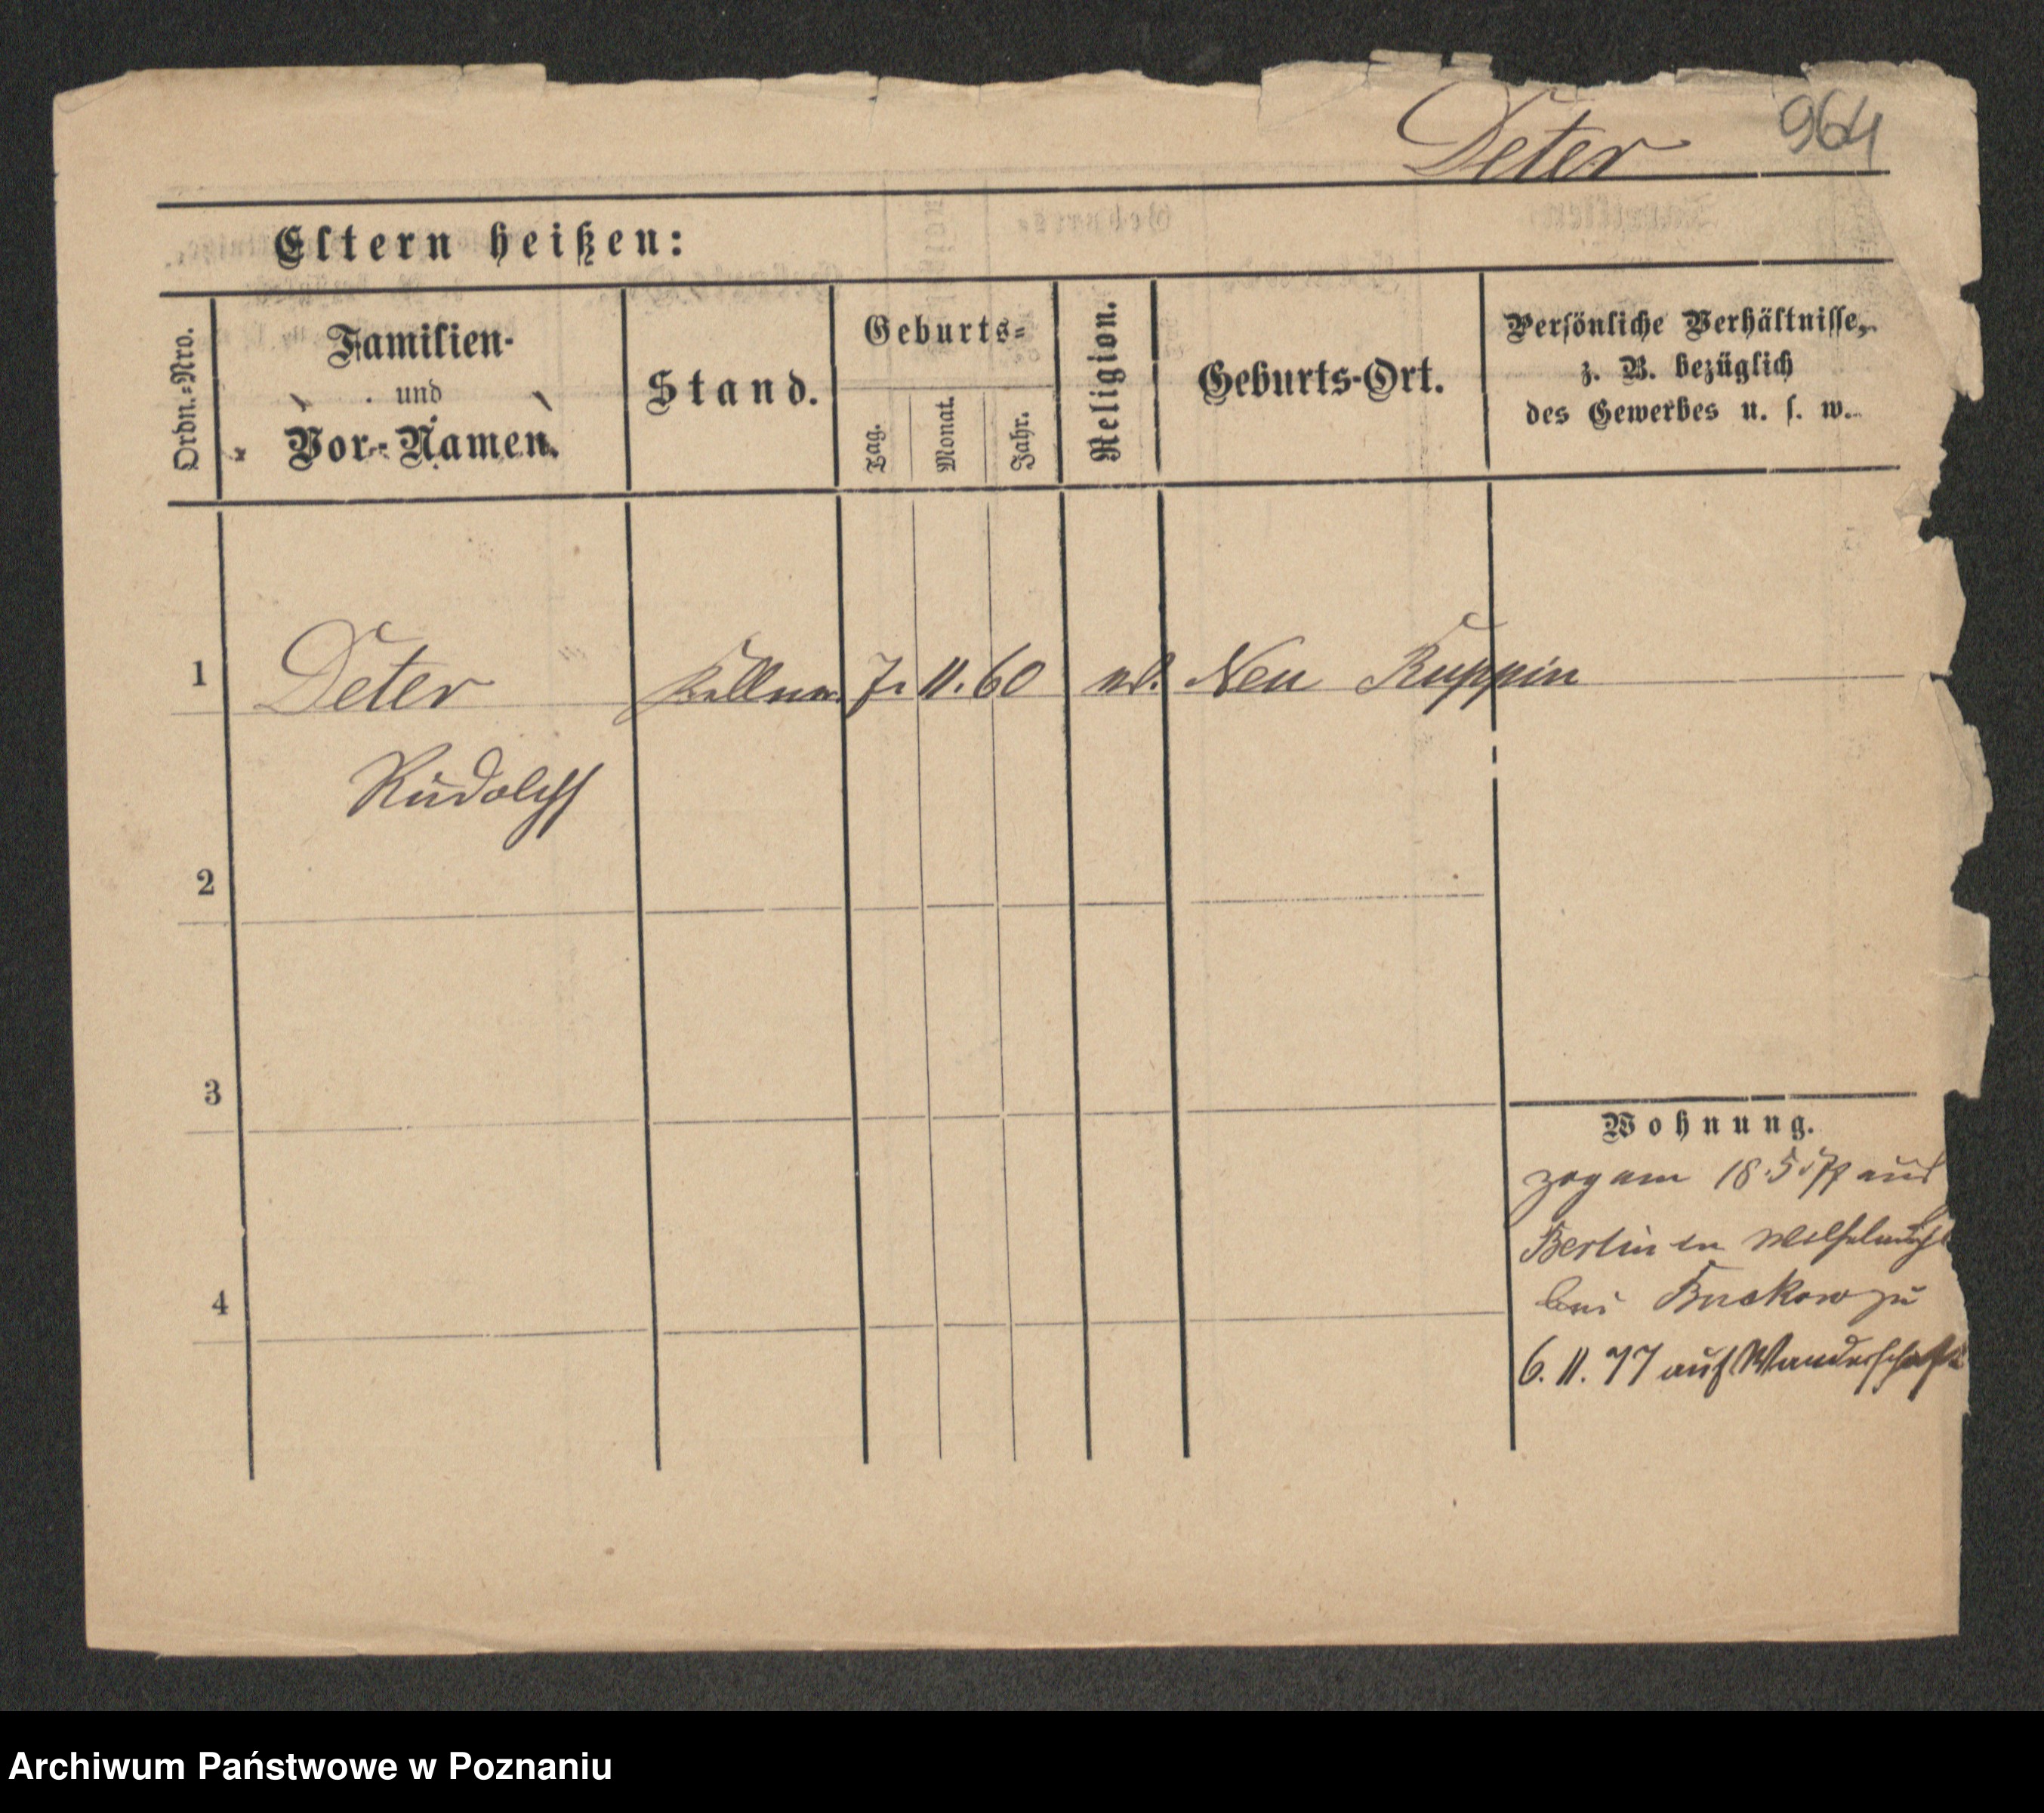 Deter 964
Eltern heißen:
Ordn.-Nro.
Familien-
und
Vor-Namen.
Stand.
Geburts-
Tag.
Monat.
Jahr.
Religion.
Geburts-Ort.
Persönliche Verhältnisse,
z. B. bezüglich
des Gewerbes u. s. w.
1 Deter Kellner 7. 11. 60 ev. Neu Ruppin
Rudolph
2
3
Wohnung.
zog am 18.5.77 aus
Berlin in
4
bei Buckow zu
6. 11. 77 auf Wanderschaft
Archiwum Państwowe w Poznaniu